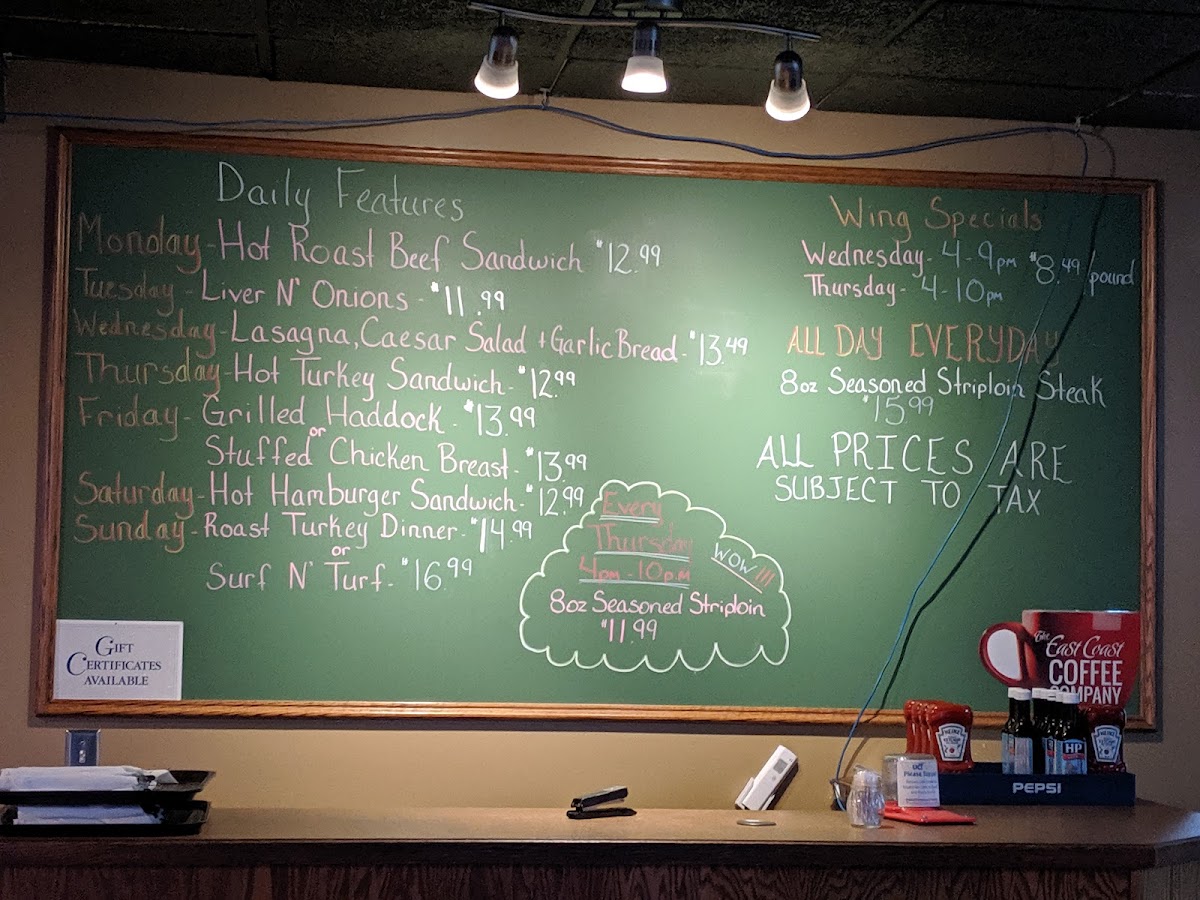 Daily Features
Monday - Hot Roast Beef Sandwich $12.99
Tuesday - Liver N' Onions - $11.99
Wednesday - Lasagna, Caesar Salad + Garlic Bread - $13.49
Thursday - Hot Turkey Sandwich - $12.99
Friday - Grilled Haddock - $13.99
or
Stuffed Chicken Breast - $13.99
Saturday - Hot Hamburger Sandwich - $12.99
Sunday - Roast Turkey Dinner - $14.99
or
Surf N' Turf - $16.99
Every
Thursday
4pm - 10p.m
WOW!!!
8oz Seasoned Striploin
$11.99
Wing Specials
Wednesday - 4 - 9pm $8.49/pound
Thursday - 4 - 10pm
ALL DAY EVERYDAY
8oz Seasoned Striploin Steak
$15.99
ALL PRICES ARE
SUBJECT TO TAX
GIFT
CERTIFICATES
AVAILABLE
The
East Coast
COFFEE
COMPANY
HEINZ
HP
HEINZ
PEPSI
Please